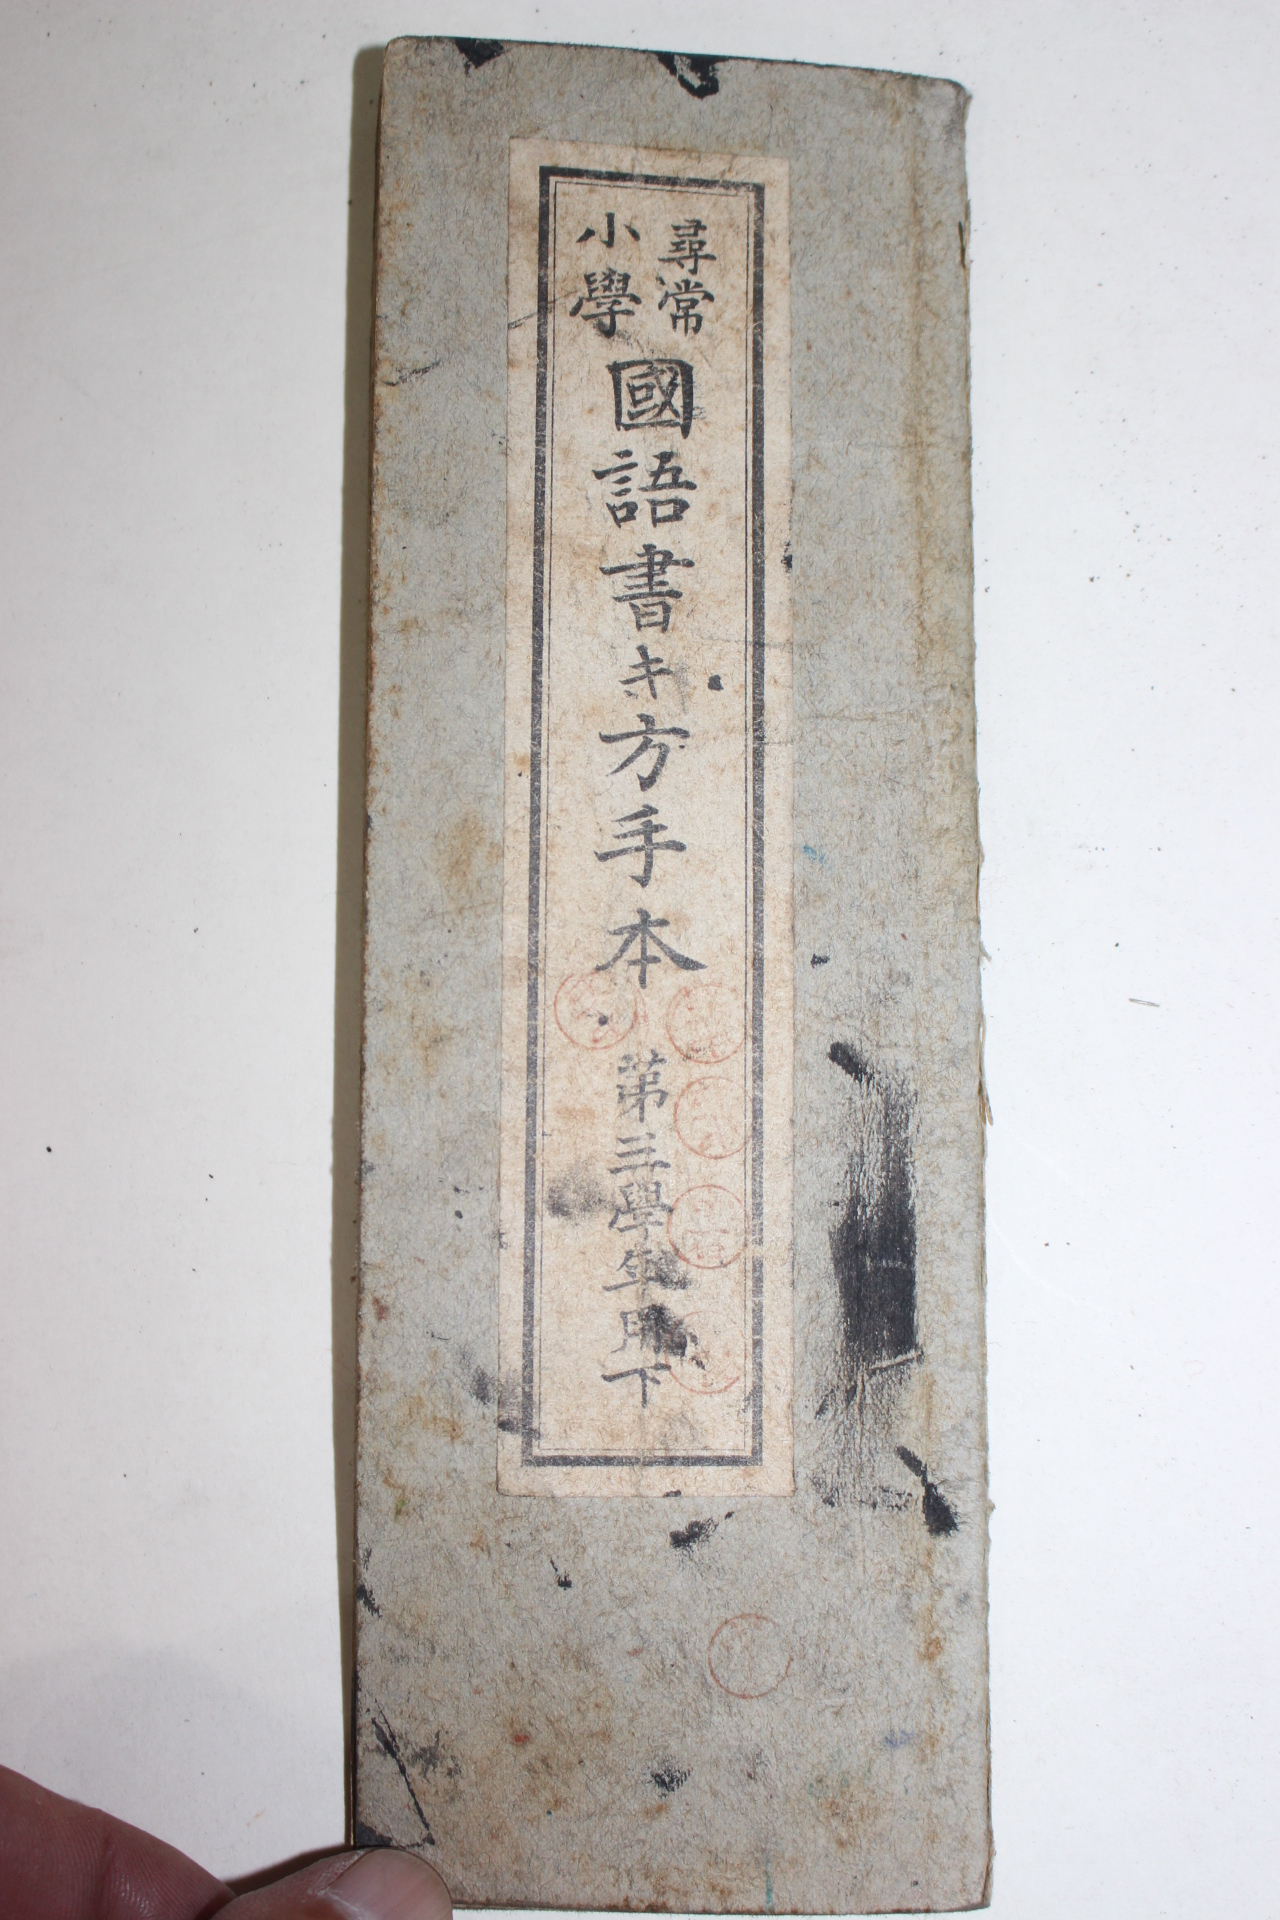 尋常
小學
國語書キ方手本 第三學年用下